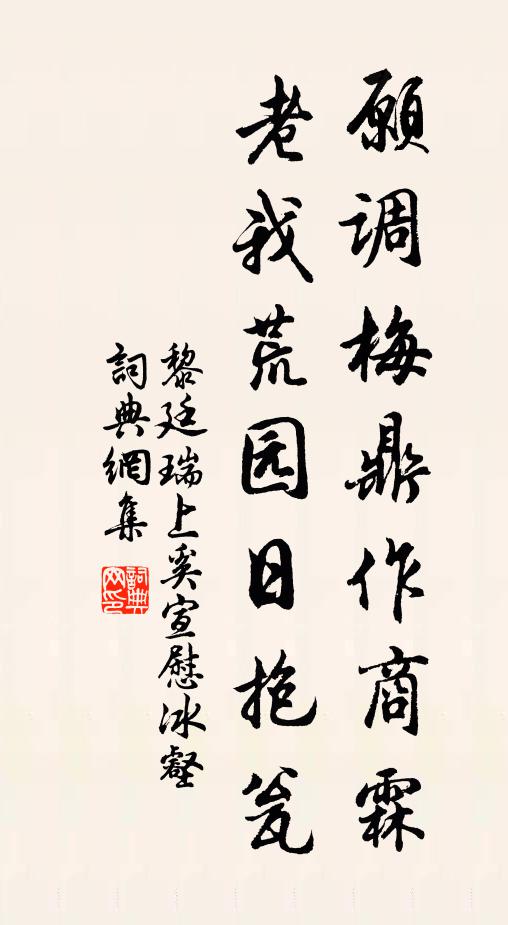 願调梅鼎作商霖
老我荒园日抱瓮
黎廷瑞上奚宣慰冰壑
詞典網集
詞典网印